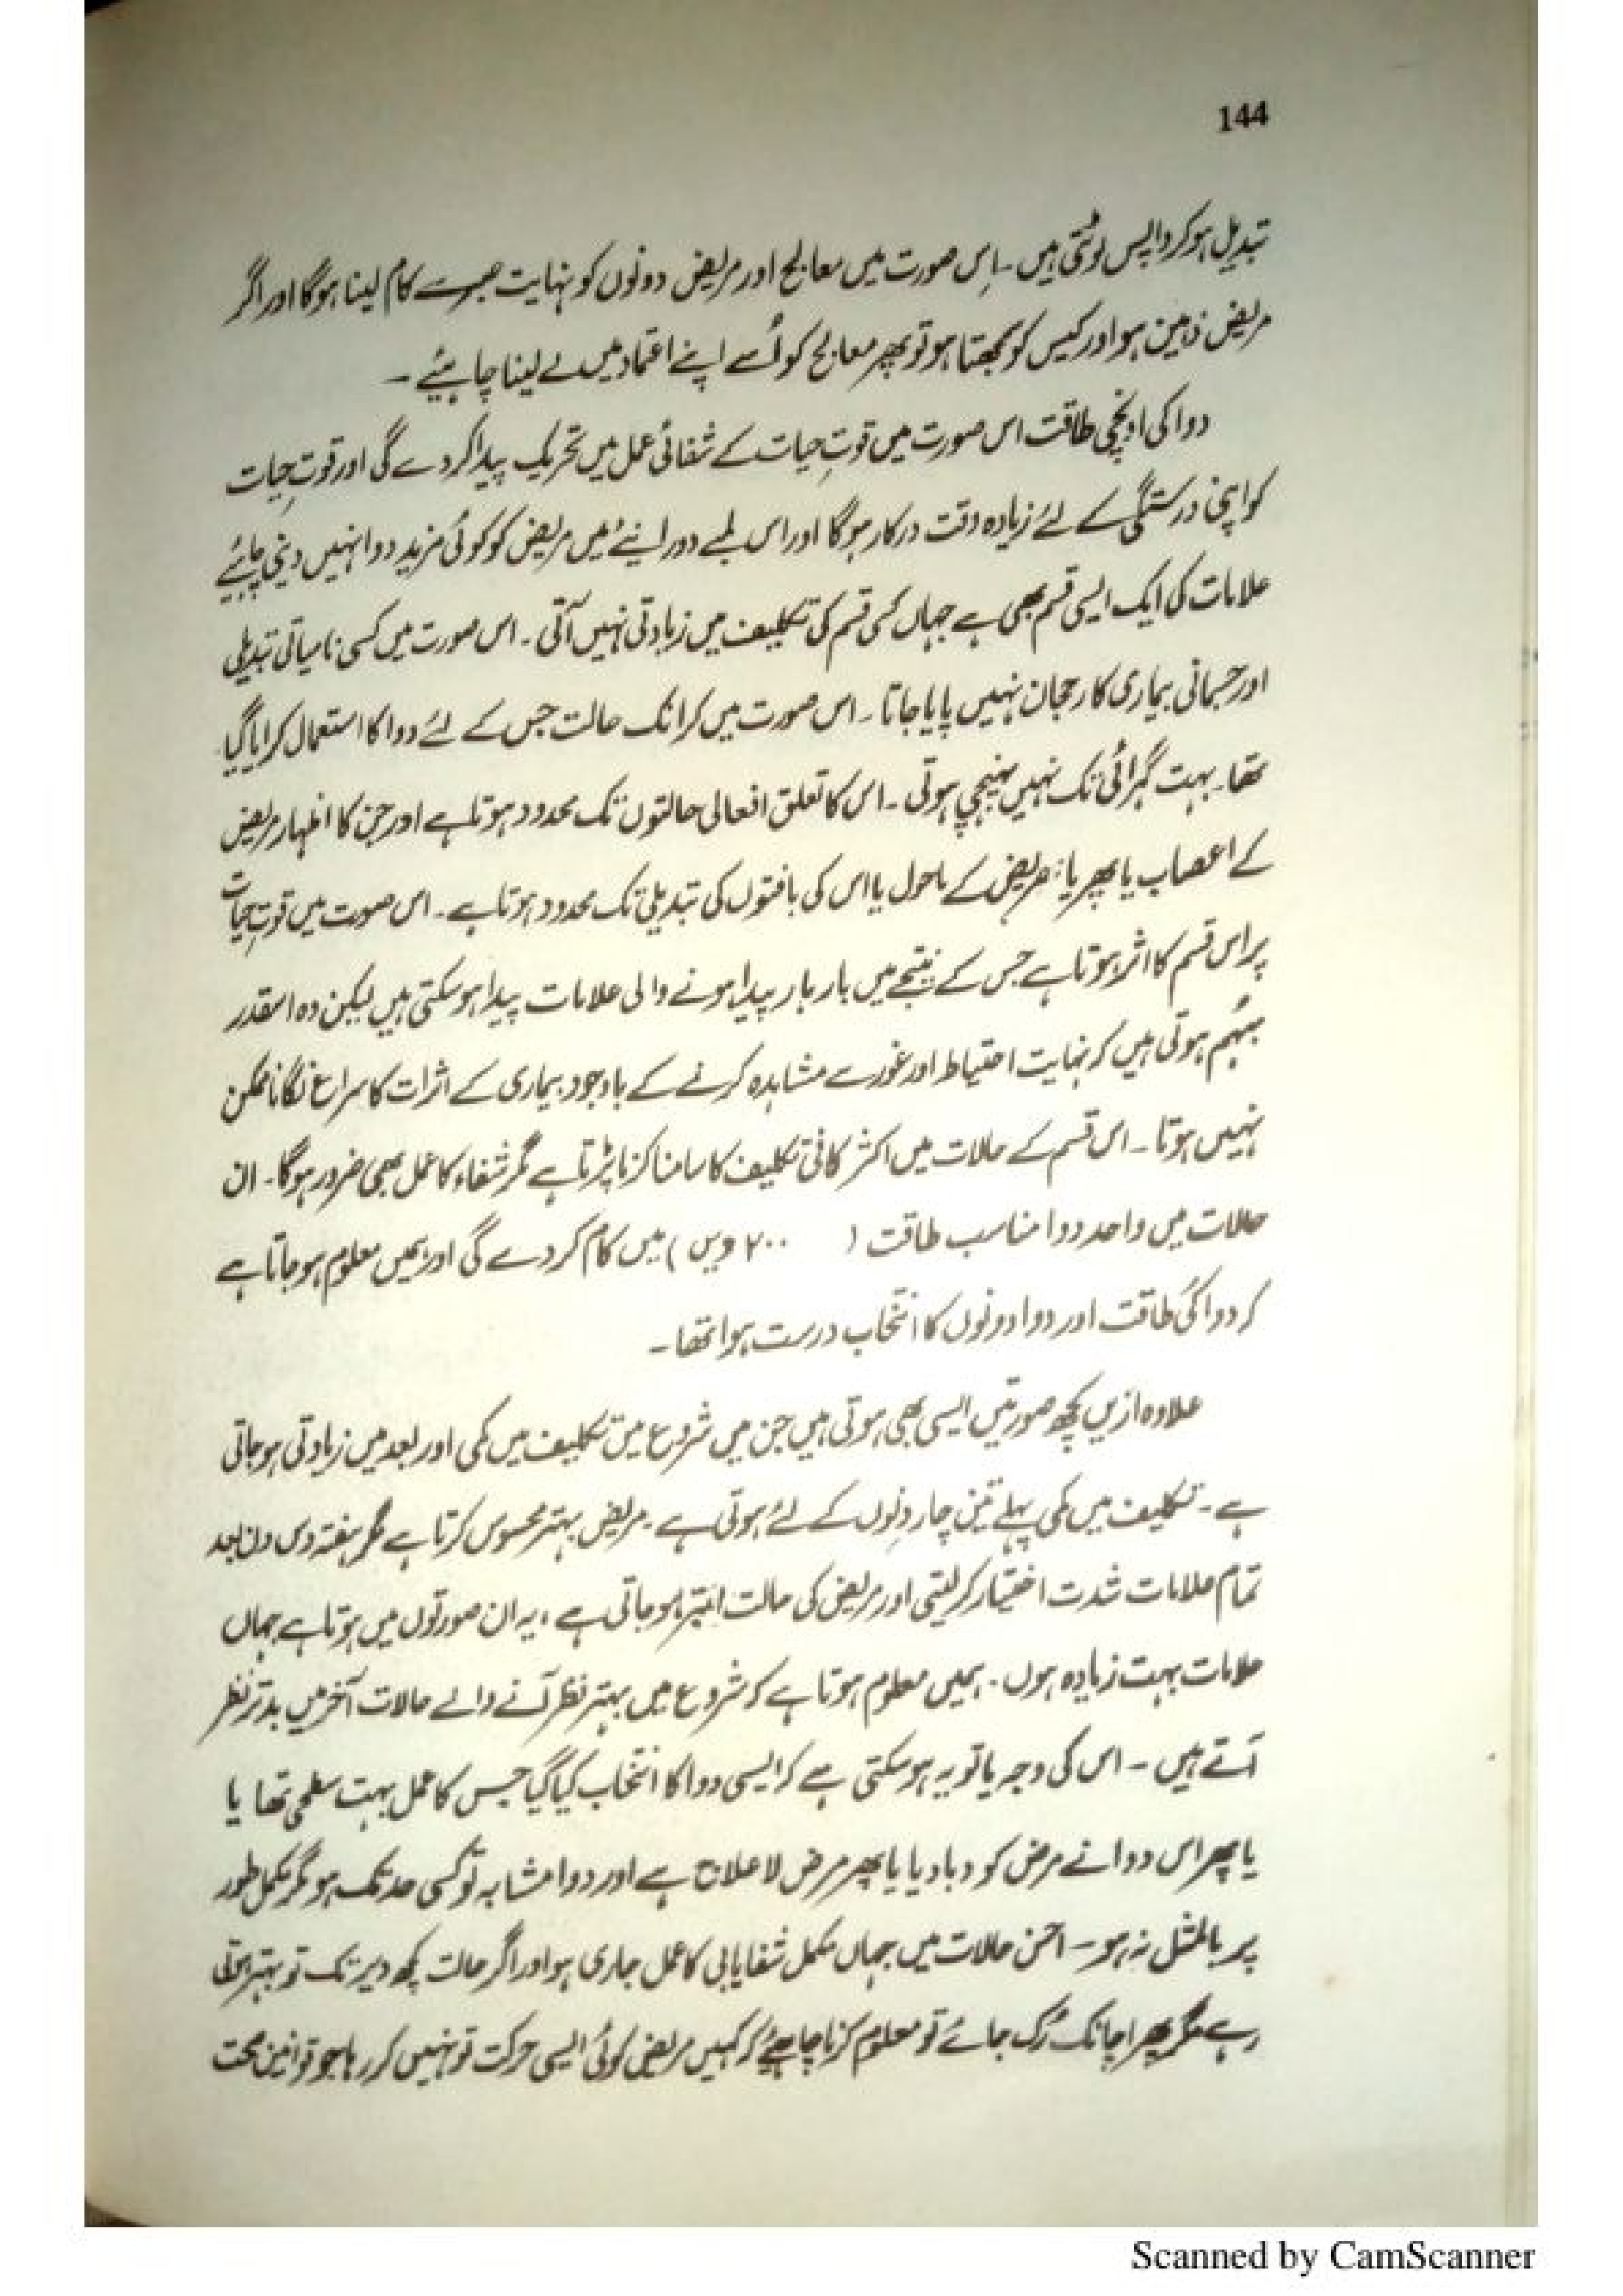 144
تبدیل ہو کر واپس لوٹتی ہیں۔ اِس صورت میں معالج اور مریض دونوں کو نہایت صبر سے کام لینا ہوگا اور اگر
مریض ذہین ہو اور کیس کو سمجھتا ہو تو پھر معالج کو اُسے اپنے اعتماد میں لے لینا چاہیئے۔
دوا کی اونچی طاقت اس صورت میں قوتِ حیات کے شفائی عمل میں تحریک پیدا کر دے گی اور قوتِ حیات
کو اپنی درستگی کے لئے زیادہ وقت درکار ہوگا اور اس لمبے دورانیئے میں مریض کو کوئی مزید دوا نہیں دینی چاہیئے
علامات کی ایک ایسی قسم بھی ہے جہاں کسی قسم کی تکلیف میں زیادتی نہیں آتی۔ اس صورت میں کسی نامیاتی تبدیلی
اور جسمانی بیماری کا رحجان نہیں پایا جاتا۔ اس صورت میں کرانک حالت جس کے لئے دوا کا استعمال کرایا گیا
تھا۔ بہت گہرائی تک نہیں پہنچی ہوتی۔ اس کا تعلق افعالی حالتوں تک محدود ہوتا ہے اور جن کا اظہار مریض
کے اعصاب یا پھر یا مریض کے ماحول یا اس کی بافتوں کی تبدیلی تک محدود ہوتا ہے۔ اس صورت میں قوتِ حیات
پر اس قسم کا اثر ہوتا ہے جس کے نتیجے میں بار بار پیدا ہونے والی علامات پیدا ہو سکتی ہیں لیکن وہ اسقدر
مبہم ہوتی ہیں کہ نہایت احتیاط اور غور سے مشاہدہ کرنے کے باوجود بیماری کے اثرات کا سراغ لگانا ممکن
نہیں ہوتا۔ اس قسم کے حالات میں اکثر کافی تکلیف کا سامنا کرنا پڑتا ہے مگر شفاء کا عمل بھی ضرور ہوگا۔ ان
حالات میں واحد دوا مناسب طاقت ( ۲۰۰ ویں ) میں کام کر دے گی اور ہمیں معلوم ہو جاتا ہے
کہ دوا کی طاقت اور دوا دونوں کا انتخاب درست ہوا تھا۔
علاوہ ازیں کچھ صورتیں ایسی بھی ہوتی ہیں جن میں شروع میں تکلیف میں کمی اور بعد میں زیادتی ہو جاتی
ہے۔ تکلیف میں کمی پہلے تین چار دِنوں کے لئے ہوتی ہے۔ مریض بہتر محسوس کرتا ہے مگر ہفتہ دس دن بعد
تمام علامات شدت اختیار کر لیتی اور مریض کی حالت ابتر ہو جاتی ہے، یہ ان صورتوں میں ہوتا ہے جہاں
علامات بہت زیادہ ہوں۔ ہمیں معلوم ہوتا ہے کہ شروع میں بہتر نظر آنے والے حالات آخر میں بدتر نظر
آتے ہیں۔ اس کی وجہ یا تو یہ ہو سکتی ہے کہ ایسی دوا کا انتخاب کیا گیا جس کا عمل بہت سطحی تھا یا
یا پھر اس دوا نے مرض کو دبا دیا یا پھر مرض لاعلاج ہے اور دوا مشابہ تو کسی حد تک ہو مگر مکمل طور
پر بالمثل نہ ہو۔ احسن حالات میں جہاں مکمل شفایابی کا عمل جاری ہو اور اگر حالت کچھ دیر تک تو بہتر ہوتی
رہے مگر پھر اچانک رُک جائے تو معلوم کرنا چاہیئے کہ کہیں مریض کوئی ایسی حرکت تو نہیں کر رہا جو قوانین صحت
Scanned by CamScanner